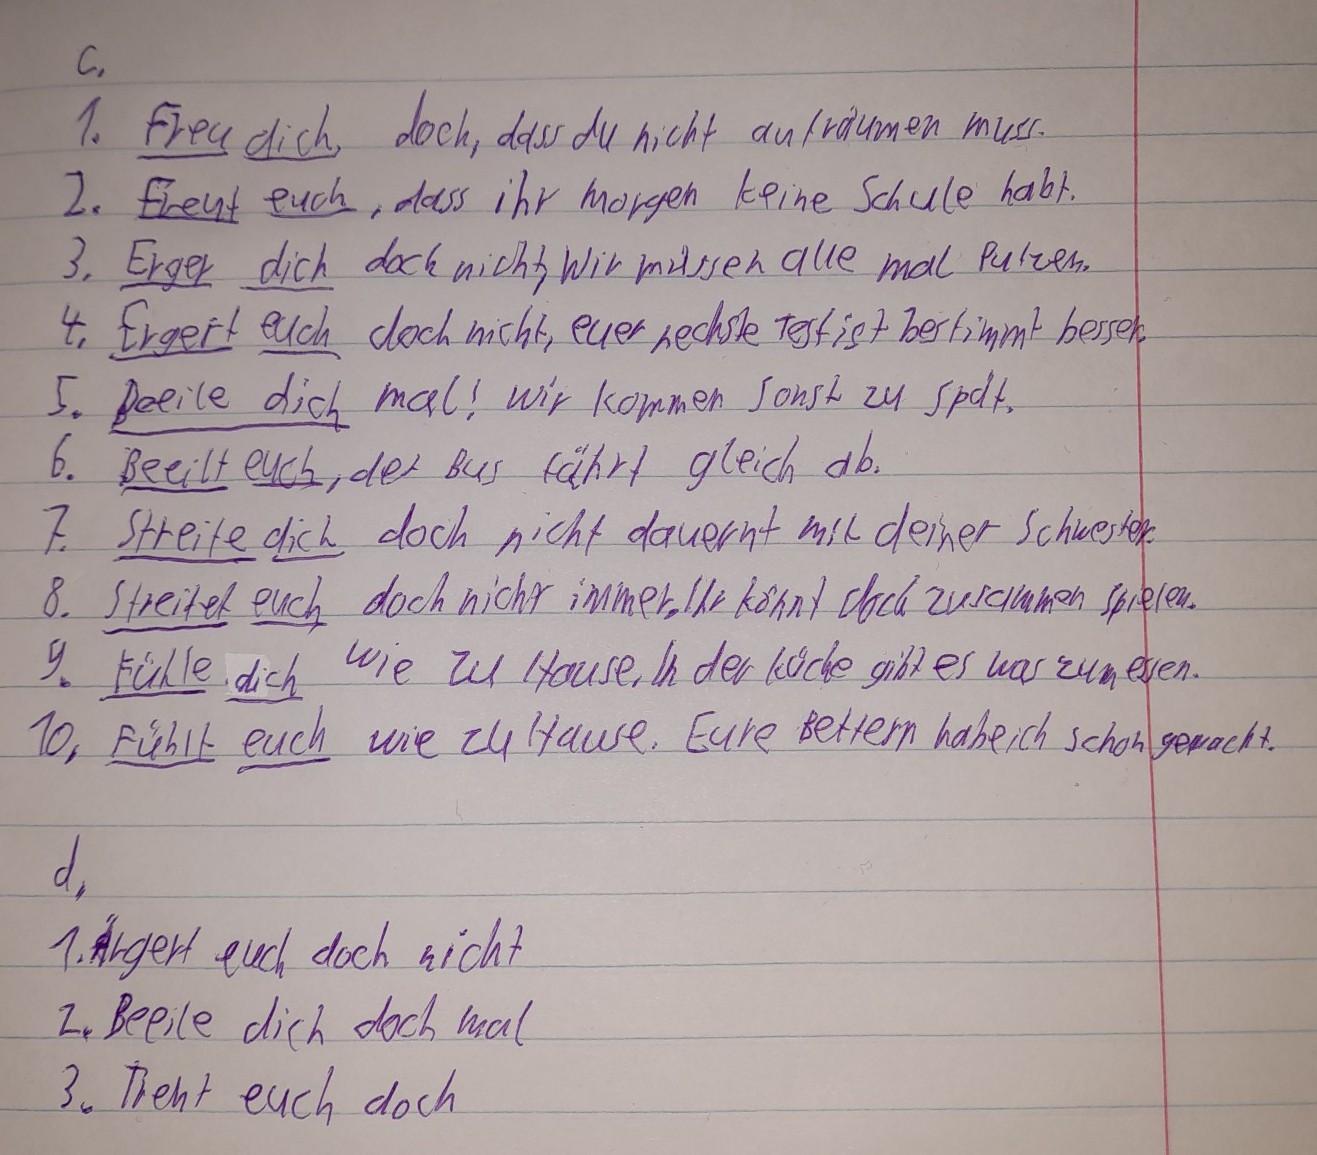 c.
1. Freu dich, doch, dass du nicht aufräumen muss.
2. Freut euch, dass ihr morgen keine Schule habt.
3. Erger dich doch nicht, Wir müssen alle mal Putzen.
4. Ergert euch doch nicht, euer nechste Test ist bestimmt besser.
5. Beeile dich mal! Wir kommen sonst zu spät.
6. Beeilt euch, der Bus fährt gleich ab.
7. Streite dich doch nicht dauernt mit deiner Schwester.
8. Streitet euch doch nicht immer. Ihr könnt doch zusammen spielen.
9. Fühle dich wie zu Hause. In der Küche gibt es was zum essen.
10. Fühlt euch wie zu Hause. Eure Bettern habe ich schon gemacht.
d,
1. Ärgert euch doch nicht
2. Beeile dich doch mal
3. euch doch